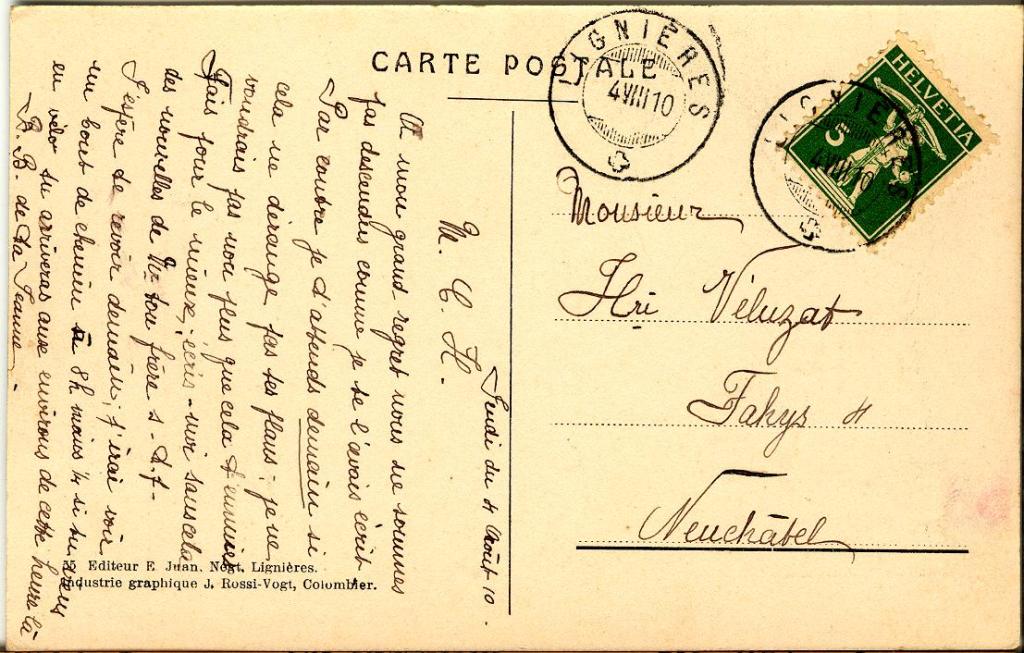 CARTE POSTALE
LIGNIÈRES
4 VIII 10
LIGNIÈRES
4 VIII 10
HELVETIA
5
Monsieur
Hri Véluzat
Fahys 4
Neuchâtel
Jeudi du 4 Août 10.
M. C. H.
A mon grand regret nous ne sommes
pas descendus comme je te l'avais écrit
Par contre je t'attends demain si
cela ne dérange pas tes plans; je ne
voudrais pas non plus que cela t'ennuie
Fais pour le mieux; écris-moi sans cela
des nouvelles de ton frère s.-t.-p.
J'espère te revoir demain; j'irai voir
un bout de chemin à 8h moins ¼ si tu viens
en vélo tu arriveras aux environs de cette heure là
B. B. de ta Jeanne.
55 Editeur E. Juan. Négt, Lignières.
Industrie graphique J. Rossi-Vogt, Colombier.